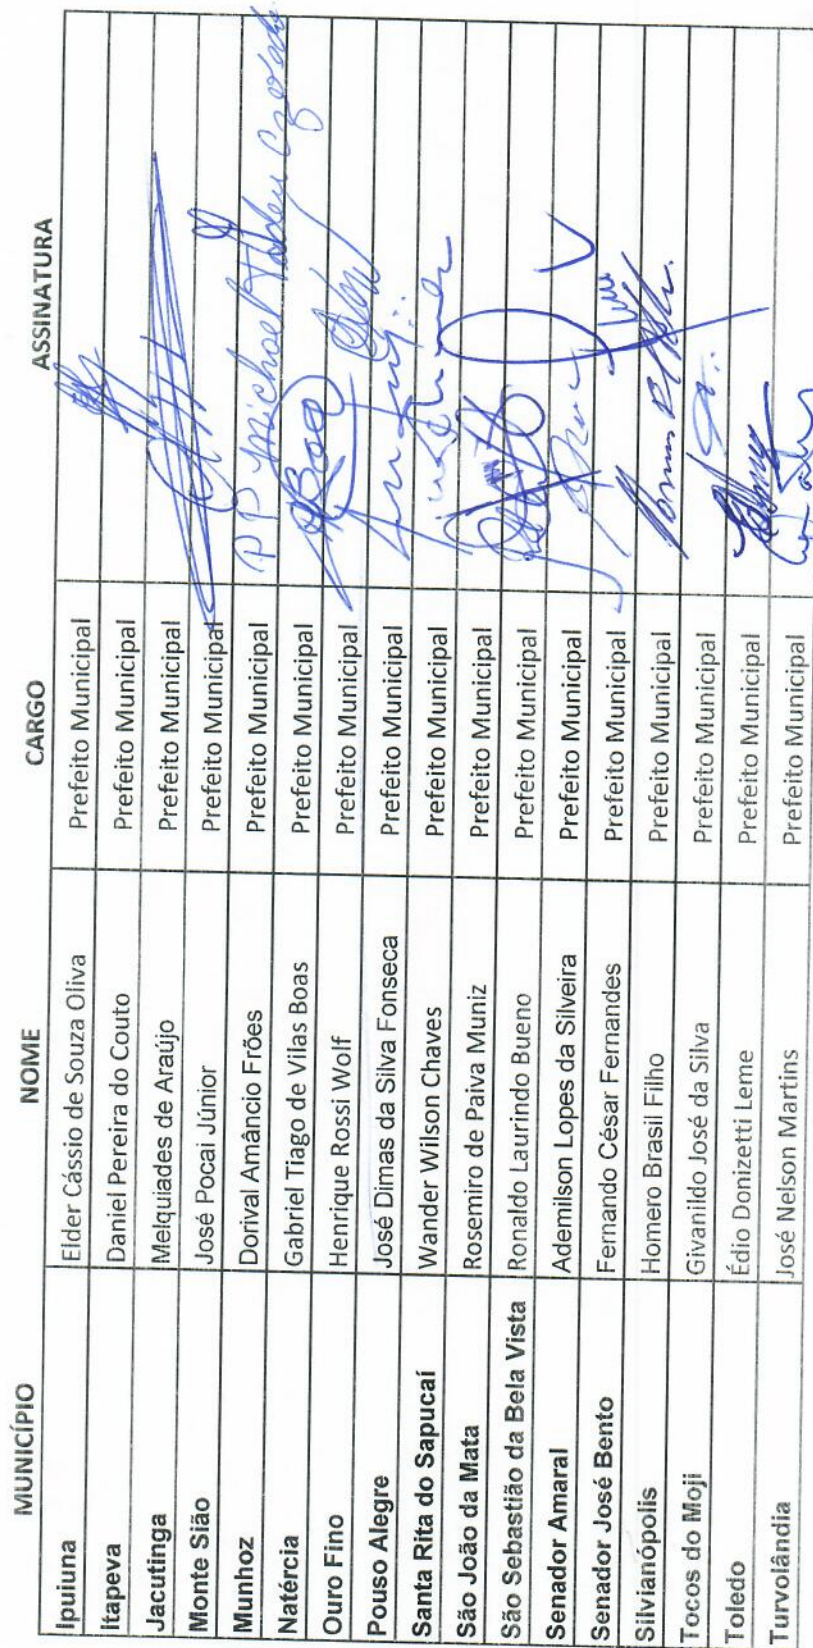 MUNICÍPIO NOME CARGO ASSINATURA
Ipuiuna Elder Cássio de Souza Oliva Prefeito Municipal
Itapeva Daniel Pereira do Couto Prefeito Municipal
Jacutinga Melquiades de Araújo Prefeito Municipal
Monte Sião José Pocai Júnior Prefeito Municipal
Munhoz Dorival Amâncio Frões Prefeito Municipal PP Michael
Natércia Gabriel Tiago de Vilas Boas Prefeito Municipal
Ouro Fino Henrique Rossi Wolf Prefeito Municipal
Pouso Alegre José Dimas da Silva Fonseca Prefeito Municipal
Santa Rita do Sapucaí Wander Wilson Chaves Prefeito Municipal
São João da Mata Rosemiro de Paiva Muniz Prefeito Municipal
São Sebastião da Bela Vista Ronaldo Laurindo Bueno Prefeito Municipal
Senador Amaral Ademilson Lopes da Silveira Prefeito Municipal
Senador José Bento Fernando César Fernandes Prefeito Municipal
Silvianópolis Homero Brasil Filho Prefeito Municipal
Tocos do Moji Givanildo José da Silva Prefeito Municipal
Toledo Édio Donizetti Leme Prefeito Municipal
Turvolândia José Nelson Martins Prefeito Municipal